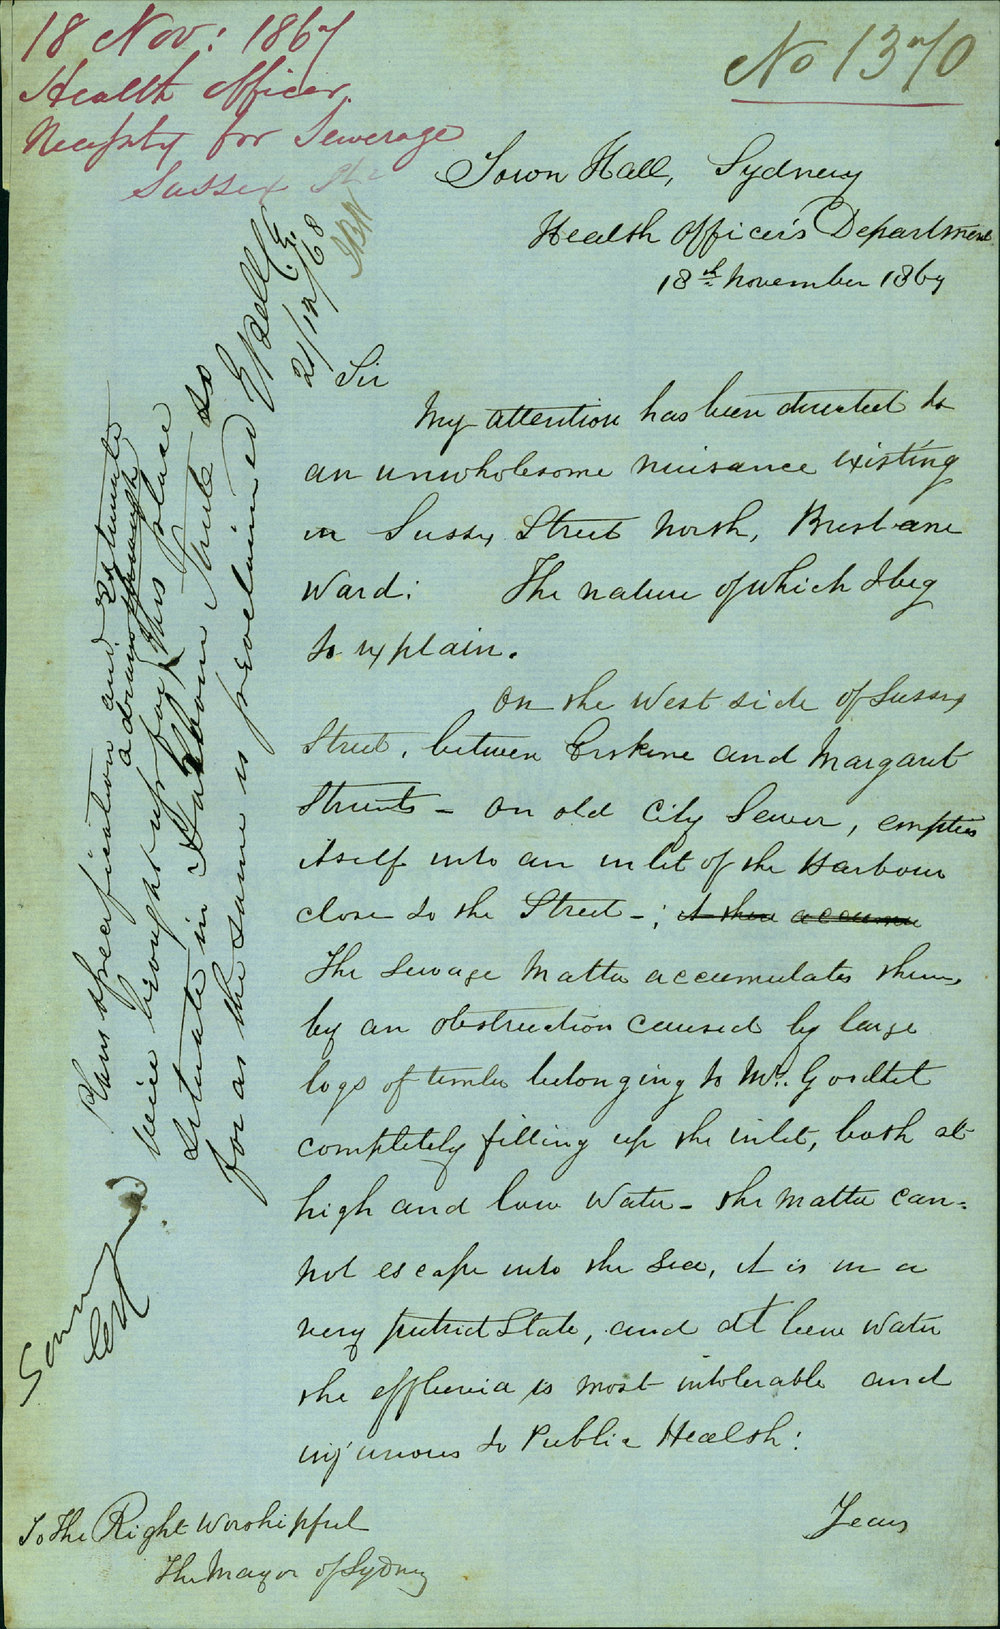 18 Nov: 1867
Health Officer.
Necessity for Sewerage
Sussex St
No 1370
Town Hall, Sydney
Health Officer's Department
18th November 1867
Sir
My attention has been directed to
an unwholesome nuisance existing
in Sussex Street North, Brisbane
Ward: The nature of which I beg
to explain.
On the West side of Sussex
Street, between Erskine and Margaret
Streets - an old City Sewer, empties
itself into an inlet of the Harbour
close to the Street - ; it there accumu
The Sewage Matter accumulates there,
by an obstruction caused by large
logs of timber belonging to Mr.
completely filling up the inlet, both at
high and low Water - the Matter can-
not escape into the Sea, it is in a
very putrid State, and at low Water
the effluvia is most intolerable and
injurious to Public Health:
Your
To The Right Worshipful
The Mayor of Sydney
Plans specification and Estimate
a drain through
were brought up for this place
situate in Harbour Trust so
for as the same is proclaimed
E Bell C.E.
21/12/68